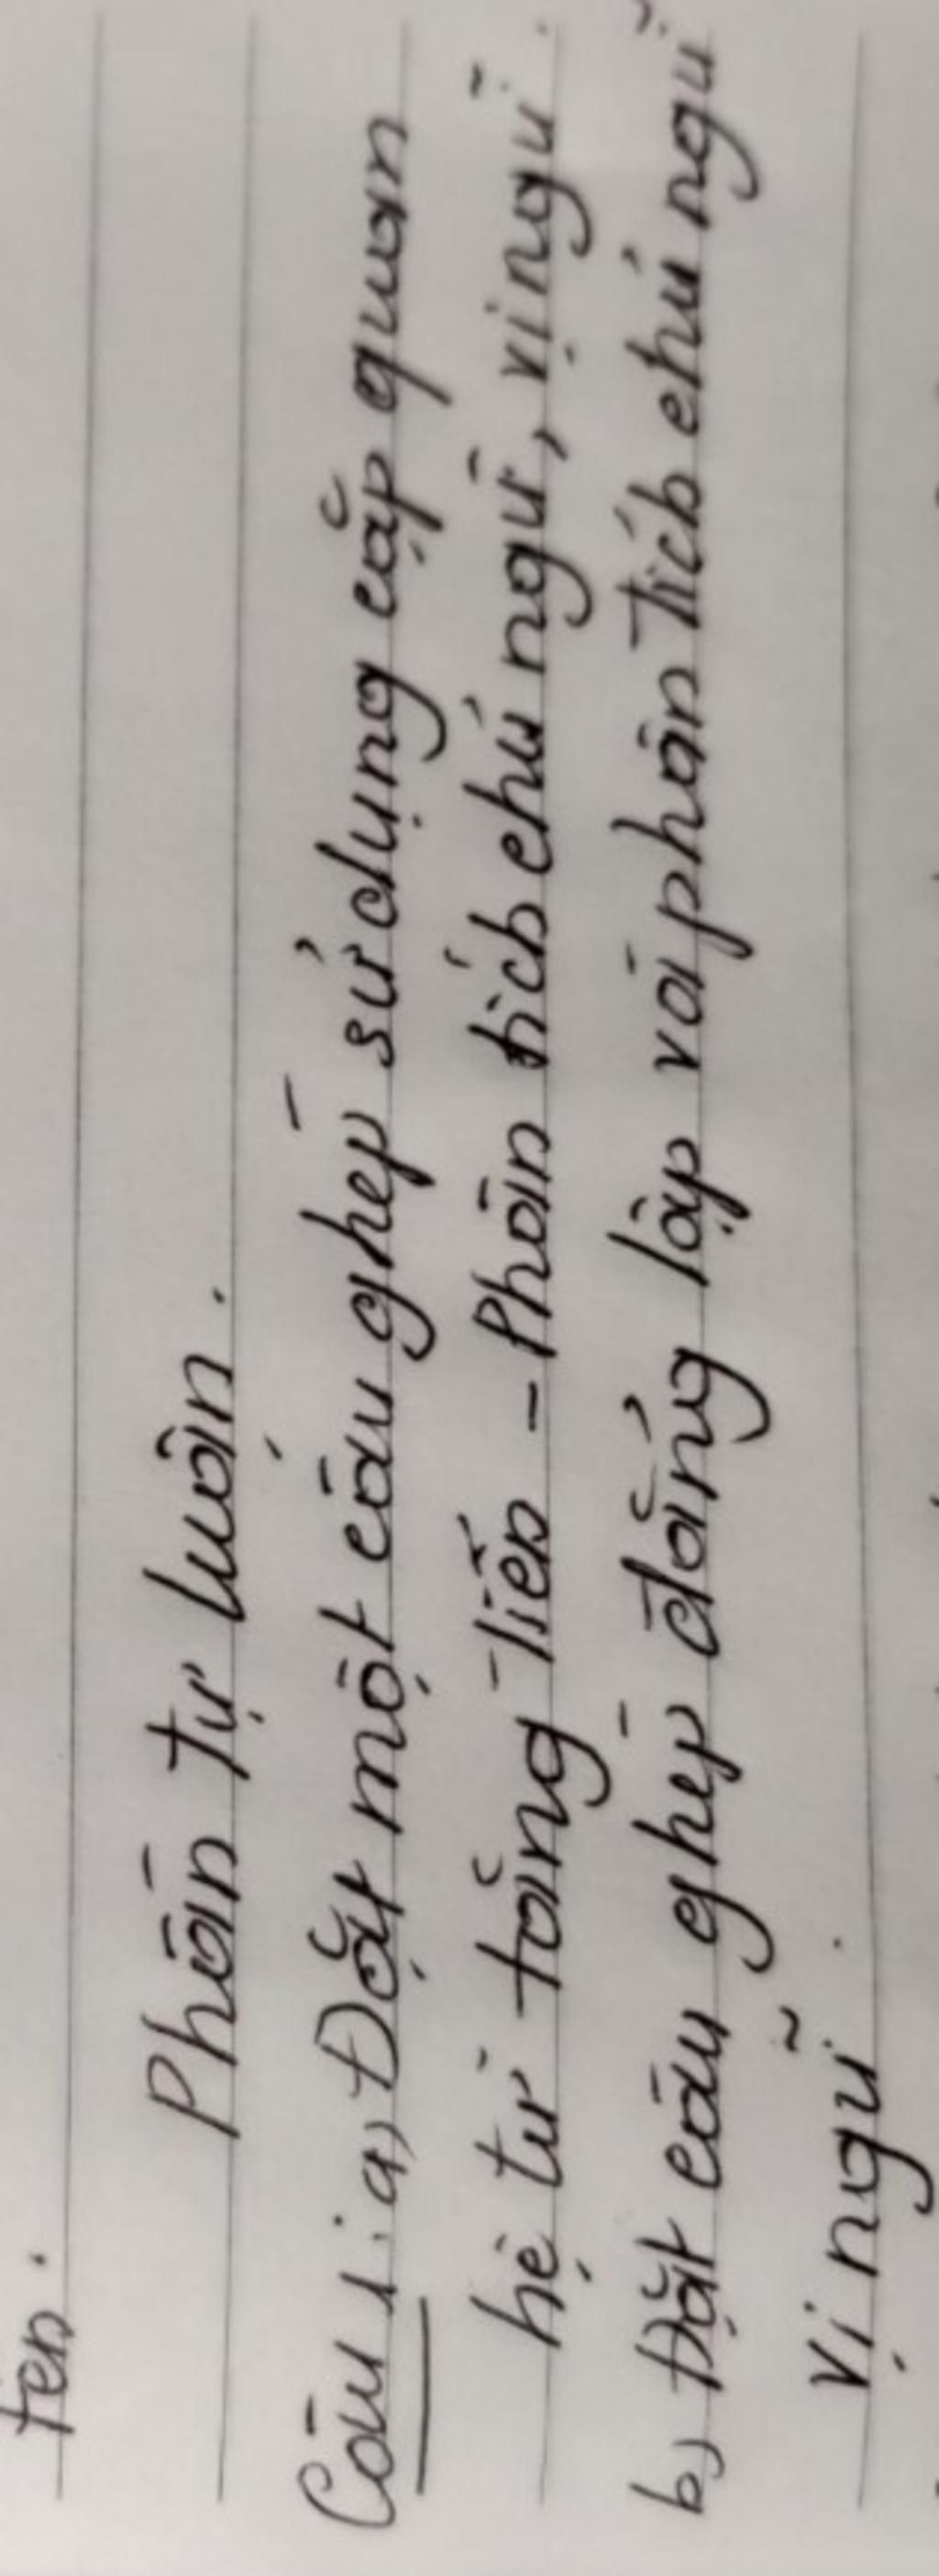 tên.
Phần Tự Luận.
Câu 1: a) Đặt một câu ghép sử dụng cặp quan
hệ từ tăng Tiến - Phân tích chủ ngữ, vị ngữ.
b) Đặt câu ghép đẳng lập và phân Tích chủ ngữ
Vị ngữ.